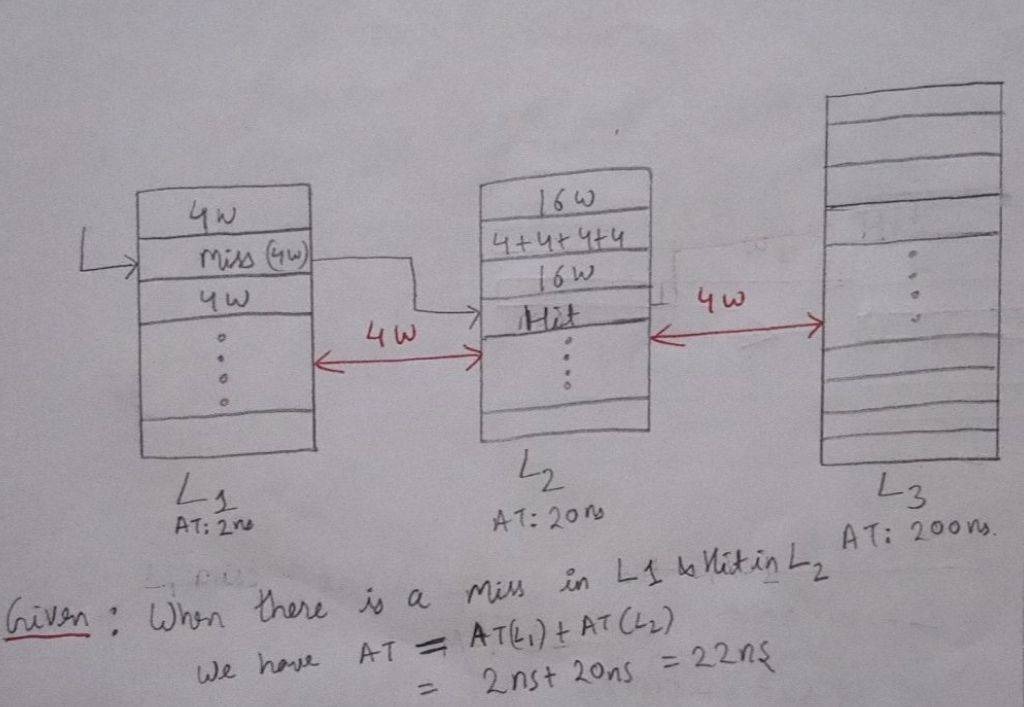 4W
miss (4W)
4W
4W
16W
4+4+4+4
16W
Hit
4W
L1
AT: 2ns
L2
AT: 20ns
L3
AT: 200ns.
Given: When there is a miss in L1 & Hit in L2
we have AT = AT(L1) + AT(L2)
= 2ns + 20ns = 22ns